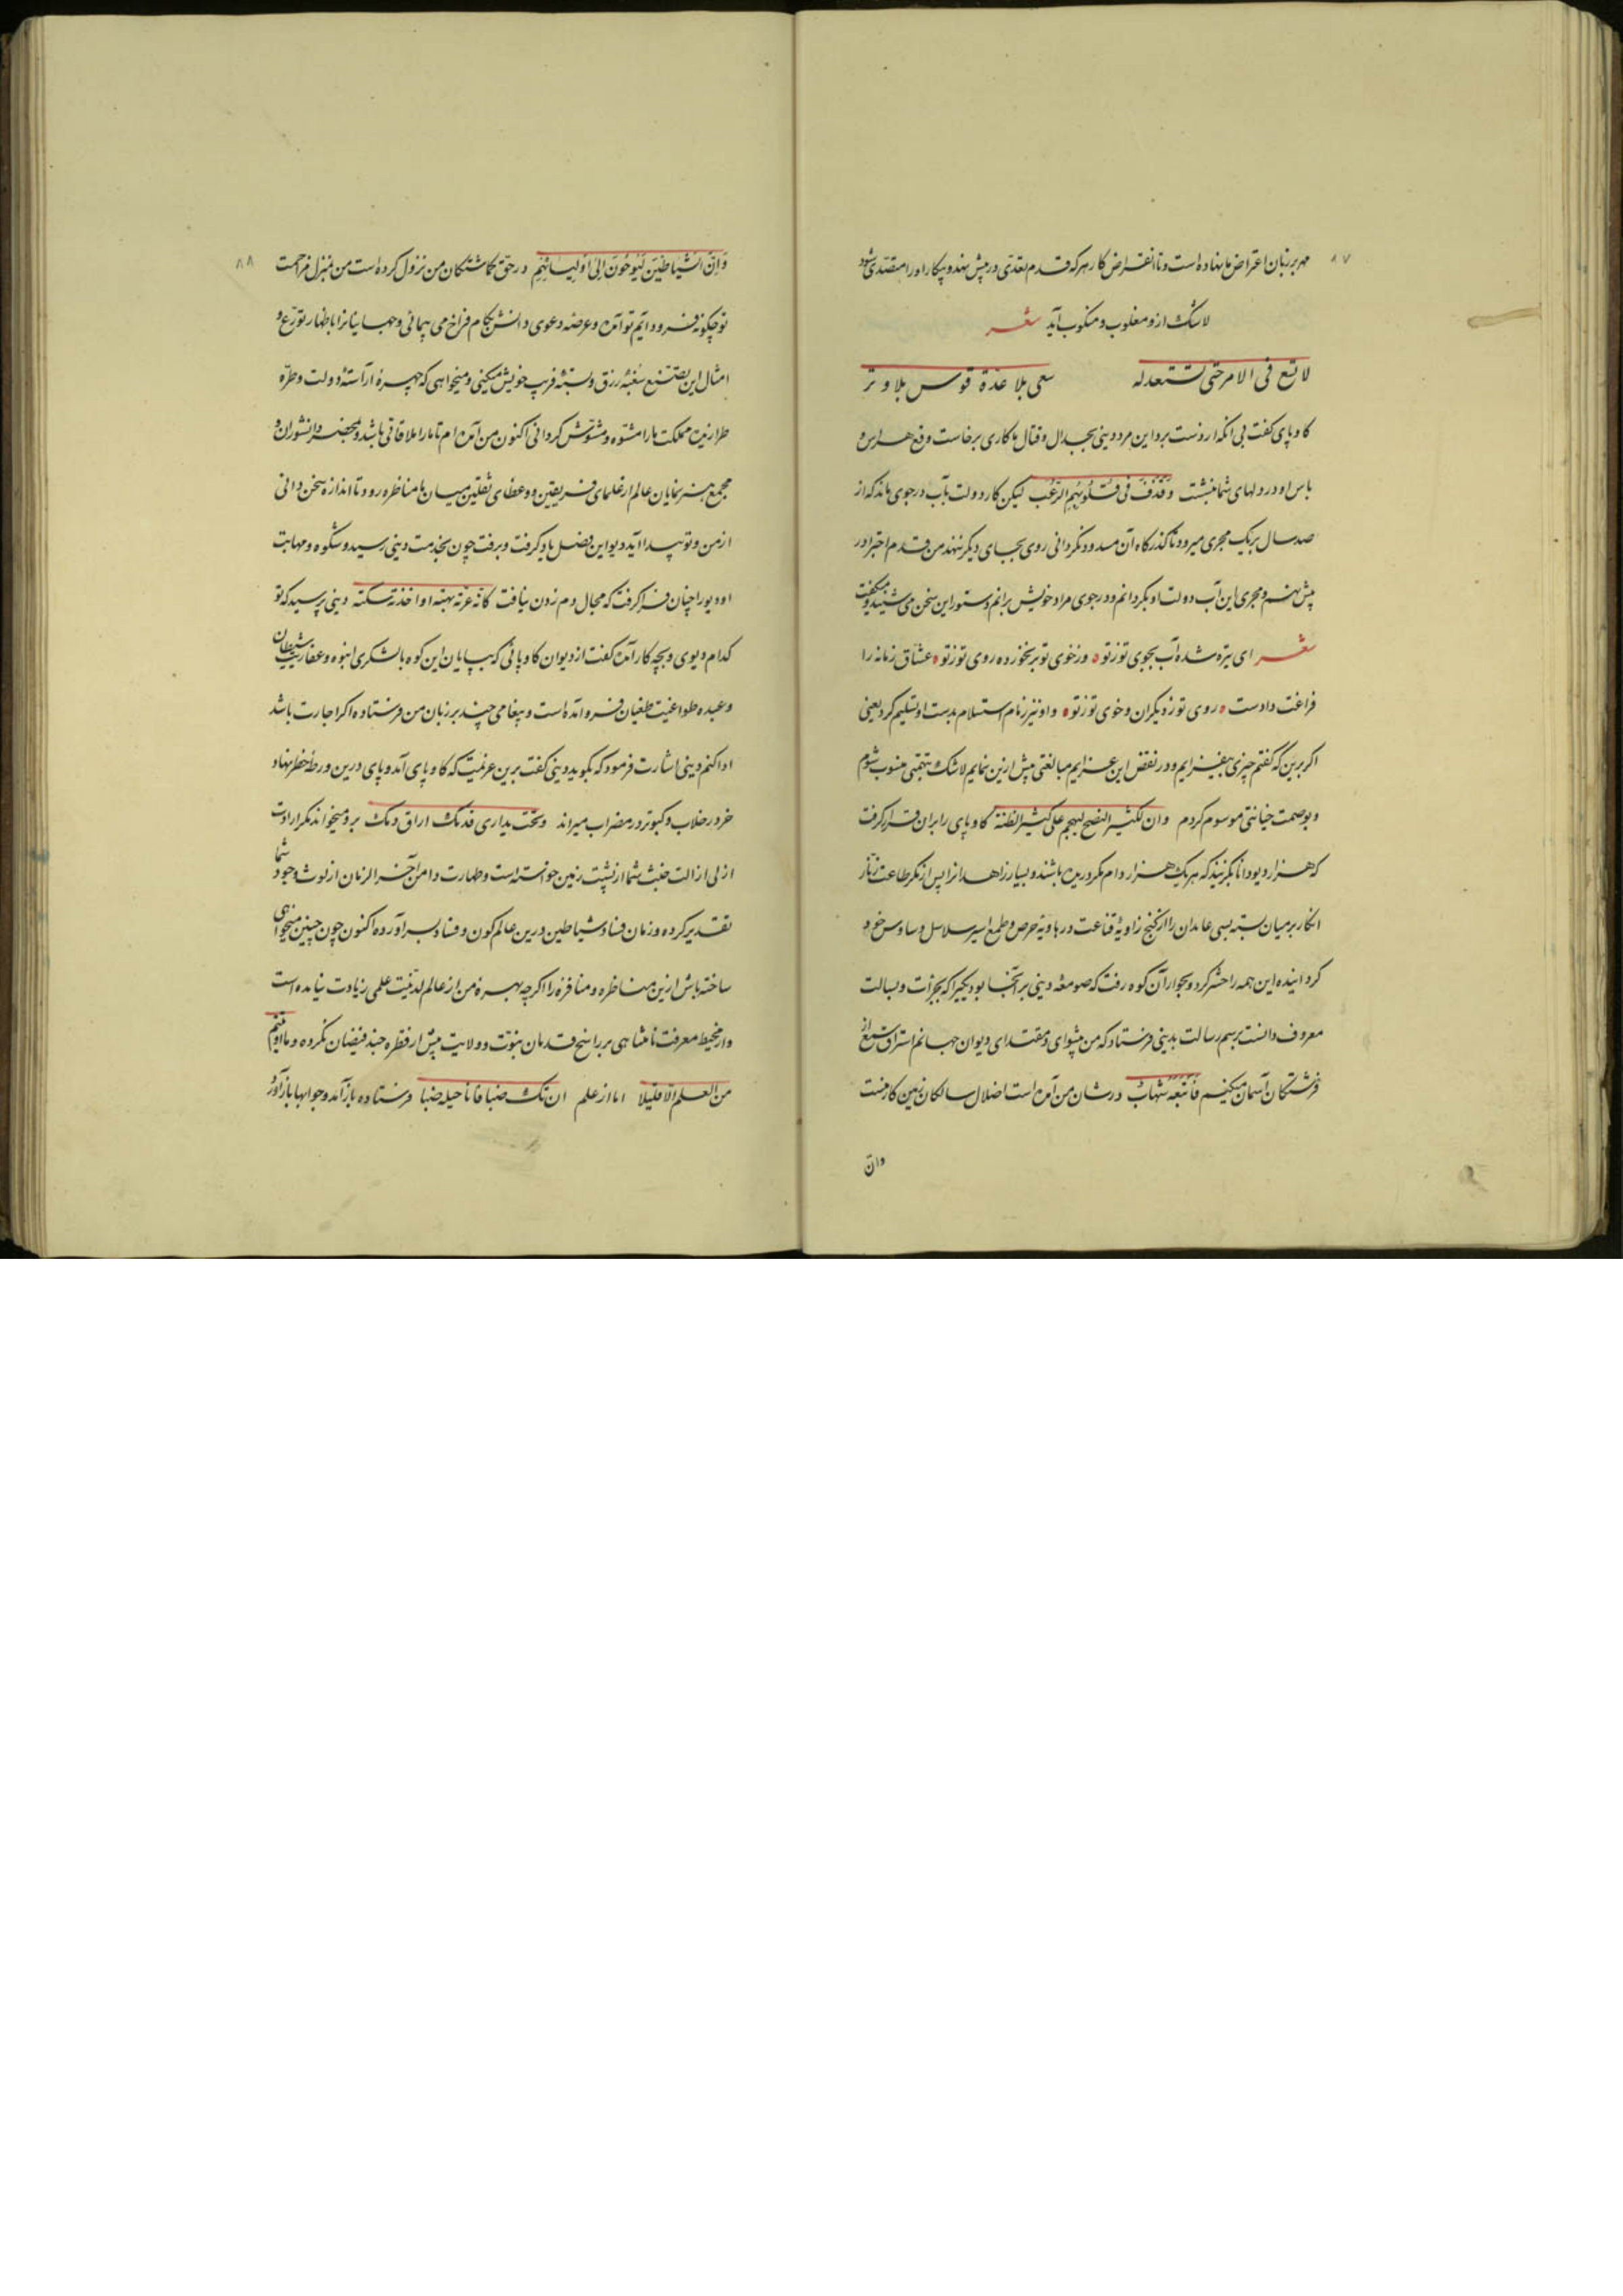 ۸۷
مهر بر زبان اعتراض ما نهاده است و تا انقراض کار هر که قدم تعدّی در پیش نهد و پیکار او را متصدّی شود
لاشک ازو مغلوب و منکوب آید شعر
لا تسع فی الامر حتی تستعد له سعی بلا عدة قوس بلا وتر
کاوپای کفت بی انکه از دست برد این مرد دینی بجدال و قتال ما کاری برخاست وقع هراس و
باس او در دلهای شما بنشست وَقَذَفَ فی قُلُوبِهِمِ الرُعْبَ لیکن کار دولت بآب در جوی ماند که از
صد سال بر یک مجری میرود تا کذرکاه آن مسدود نکردانی روی بجای دیکر ننهد من قدم اجترا در
پیش نهم و مجری این آب دولت او بکردانم و در جوی مراد خویش برانم دستور این سخن می شنید و میکفت
شعر ای تیره شده آب بجوی تو ز تو وز خوی تو بر نخورده روی تو ز تو عشّاق زمانه را
فراغت دادست روی تو ز دیکران و خوی تو ز تو و او نیز زمام استسلام بدست او تسلیم کرد یعنی
اکر برین که کفتم چیزی بیفزایم و در نقض این عزایم مبالغتی بیش ازین نمایم لاشک بتهمتی منسوب شوم
و بوصمت خیانتی موسوم کردم وان کثیر النصح یهجم علی کثیر الظنة کاوپای را بران قرار کرفت
که هزار دیو دانا بکزیند که هر یک هزار دام مکر دریده باشند و بسیار زاهدانرا پس از مکر طاعت زنّار
انکار بر میان بسته بسی عابدان را از کنج زاویهٔ قناعت در هاویهٔ حرص و طمع اسیر سلاسل وساوس خود
کردانیده این همه را حشر کرد و بجوار آن کوه رفت که صومعه دینی بر آنجا بود یکیرا که بجرأت و بسالت
معروف دانست برسم رسالت بدینی فرستاد که من پیشوای و مقتدای دیوان جهانم استراق سمع از
فرشتکان آسمان میکنیم فَأَتْبَعَهُ شِهَابٌ در شان من آمده است اضلال سالکان زمین کار منست
وانّ
۸۸
وَاِنَّ الشَّیَاطینَ لَیُوحُونَ اِلیَ اَوْلِیَائِهِمْ در حقّ کماشتکان من نزول کرده است من بمنزل مزاحمت
تو چکونه فرود آیم تو آمده و عرصهٔ دعوی دانش بکام فراخ می پیمائی و جهانیانرا باظهار تورّع و
امثال این تصنّع سغبهٔ زرق و بستهٔ فریب خویش میکنی و میخواهی که چهرهٔ آراستهٔ دولت و طرّه
طراز زینت مملکت ما را مشوّه و مشوّش کردانی اکنون من آمده ام تا ما را ملاقاتی باشد و بمحضر دانشوران و
مجمع هنر نمایان عالم از علمای فریقین و عظمای ثقلین میان ما مناظره رود تا اندازه سخن دانی
از من و تو پیدا آید دیو این فصل یاد کرفت و برفت چون بخدمت دینی رسید و شکوه و مهابت
او دیو را چنان فرا کرفت که مجال دم زدن نیافت کانه عرته بهتة او اخذته سکتة دینی پرسید که تو
کدام دیوی و بچه کار آمده کفت از دیوان کاوپائی که بپایان این کوه با لشکری انبوه و عفاریت شیطان
و عبدهٔ طواغیت طغیان فرو آمده است و پیغامی چند بر زبان من فرستاده اکر اجازت باشد
ادا کنم دینی اشارت فرمود که بکوید دینی کفت برین عزیمت که کاوپای آمد و پای درین ورطهٔ خطر نهاد
خر در خلاب و کبوتر در مضراب میراند وتحت یداری قدمک اراق دمک برو میخواند مکر ارادت
ازلی ازالت خبث شما از پشت زمین خواسته است و طهارت دامن آخر الزمان از لوث وجود شما
تقدیر کرده و زمان فساد شیاطین درین عالم کون و فساد بسر آورده اکنون چون چنین میخواهی
ساخته باش ازین مناظره و منافره را اکر چه بهرهٔ من از عالم لدنّیت علمی زیادت نیامده است
و از محیط معرفت نامتناهی بر راسخ قدمان نبوّت و ولایت بیش از قطرهٔ چند فیضان نکرده وما اوتیتم
من العلم الّا قلیلا اما از علم ان تک ضبا فانا حیله ضبا فرستاده باز آمد و جوابها باز آورد